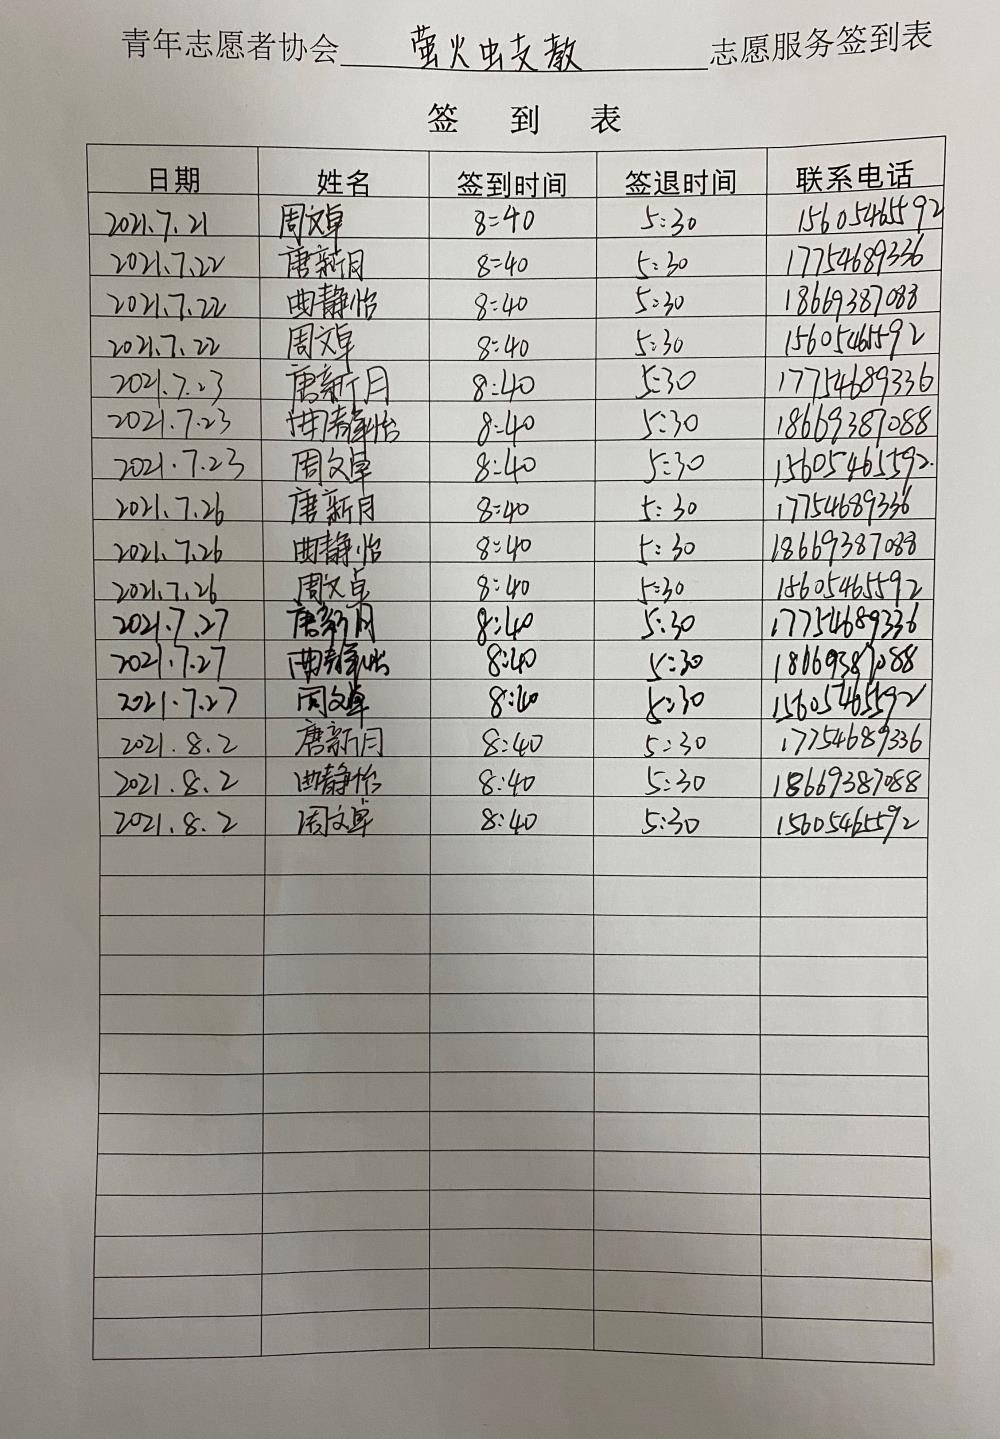 青年志愿者协会 萤火虫支教 志愿服务签到表
签 到 表
日期 姓名 签到时间 签退时间 联系电话
2021.7.21 周文卓 8:40 5:30 15605465592
2021.7.22 唐新月 8:40 5:30 17754689336
2021.7.22 曲静怡 8:40 5:30 18669387088
2021.7.22 周文卓 8:40 5:30 15605465592
2021.7.23 唐新月 8:40 5:30 17754689336
2021.7.23 曲静怡 8:40 5:30 18669387088
2021.7.23 周文卓 8:40 5:30 15605465592.
2021.7.26 唐新月 8:40 5:30 17754689336
2021.7.26 曲静怡 8:40 5:30 18669387088
2021.7.26 周文卓 8:40 5:30 15605465592
2021.7.27 唐新月 8:40 5:30 17754689336
2021.7.27 曲静怡 8:40 5:30 18669387088
2021.7.27 周文卓 8:40 5:30 15605465592
2021.8.2 唐新月 8:40 5:30 17754689336
2021.8.2 曲静怡 8:40 5:30 18669387088
2021.8.2 周文卓 8:40 5:30 15605465592